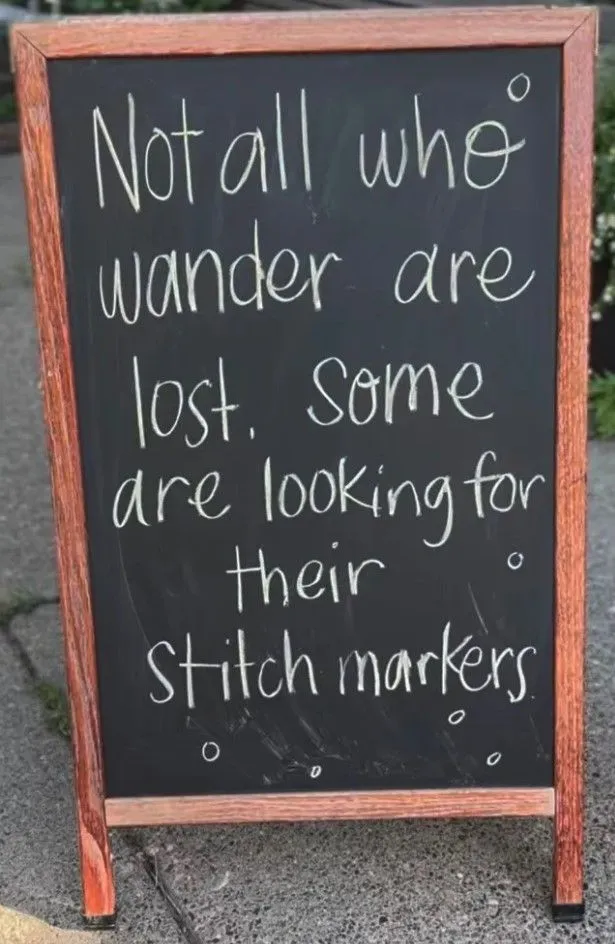 Not all who
wander are
lost. Some
are looking for
their
stitch markers.